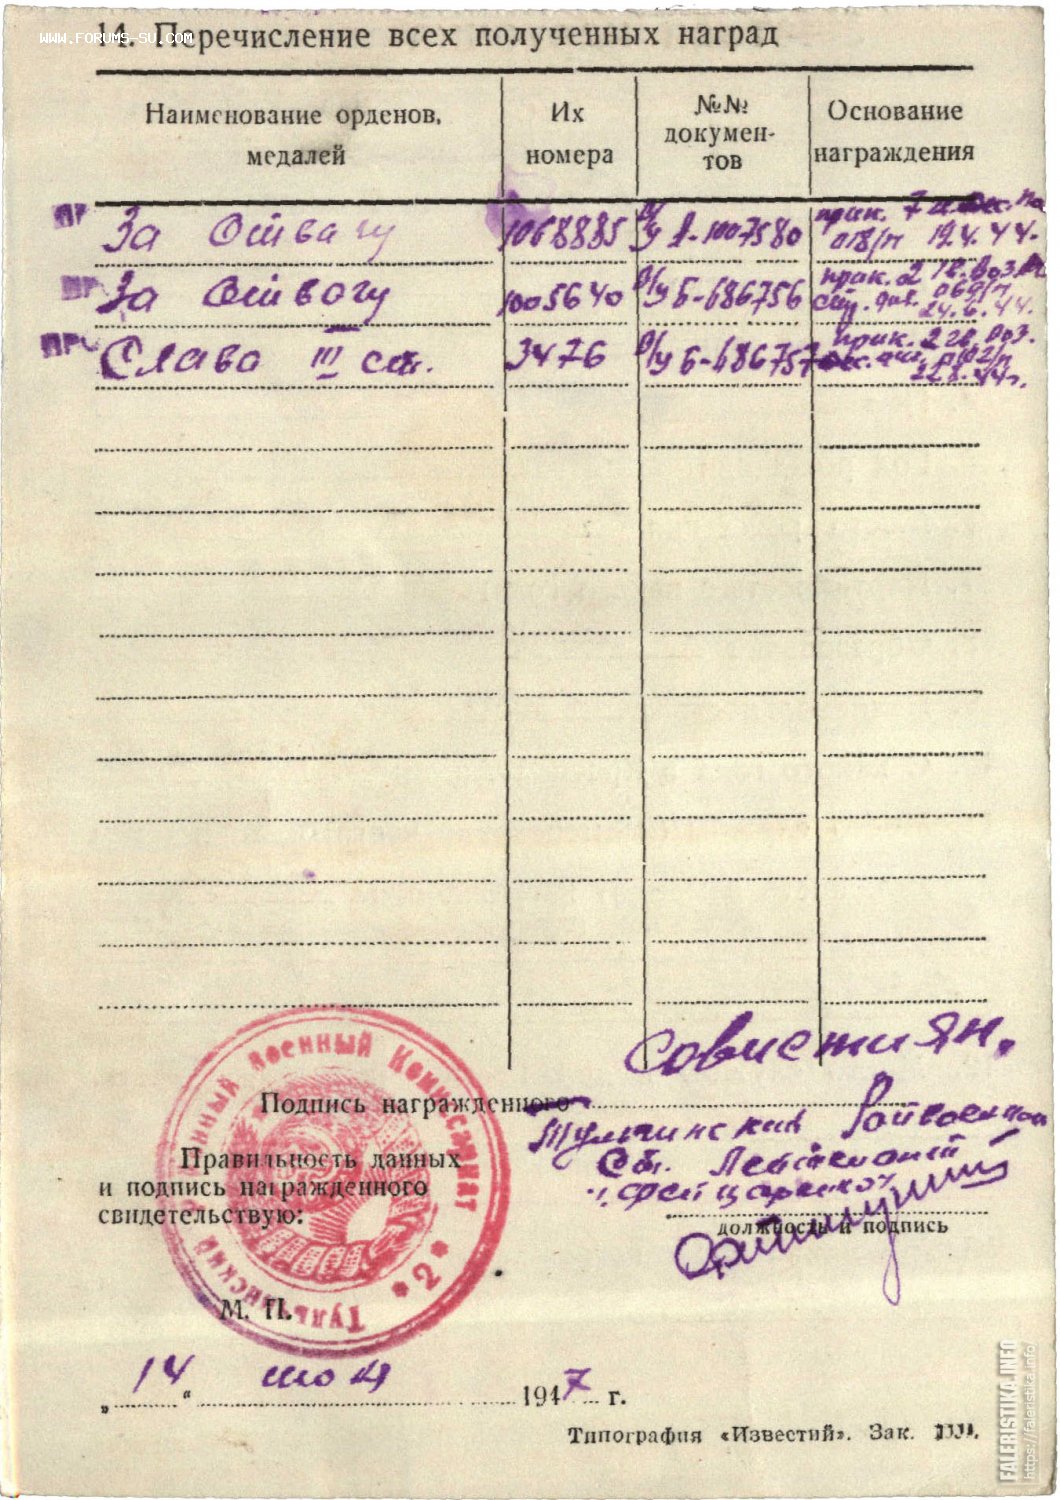 www.forums-su.com
14. Перечисление всех полученных наград
Наименование орденов, медалей
Их номера
№№ докумен-тов
Основание награждения
За Отвагу 1068885 В/у А-1007580 прик. 7 018/н 19.4.44.
За Отвагу 1005640 В/у Б-686756 прик. 2 069/н 24.6.44.
Слава III ст. 3476 В/у Б-686757 прик. 2 22.8.44г.
Подпись награжденного
Тульчинский Райвоенком
Правильность данных
и подпись награжденного
свидетельствую:
Ст. Лейтенант
должность и подпись
Тульчинский Военный Комиссариат
* 2 *
М. П.
„ 14 “ июня 1947 г.
Типография «Известий». Зак.
FALERISTIKA.INFO
https://faleristika.info/